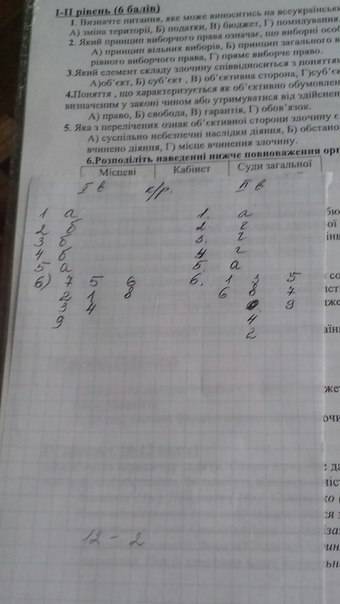 I-II рівень (6 балів)
1. Визначте питання, яке може виноситись на всеукраїнськ
А) зміна території, Б) податки, В) бюджет, Г) помилування.
2. Який принцип виборчого права означає, що виборні особ
А) принцип вільних виборів, Б) принцип загального в
рівного виборчого права, Г) пряме виборче право.
3.Який елемент складу злочину співвідноситься з поняттям
А)об'єкт, Б) суб'єкт , В) об'єктивна сторона, Г)суб'є
4.Поняття , що характеризується як об'єктивно обумовлен
визначеним у законі чином або утримуватися від здійснен
А) право, Б) свобода, В) гарантія, Г) обов'язок.
5. Яка з перелічених ознак об'єктивної сторони злочину є
А) суспільно небезпечні наслідки діяння, Б) обстано
вчинено діяння, Г) місце вчинення злочину.
6.Розподіліть наведенні нижче повноваження орг
Місцеві Кабінет Суди загальної
I в к/р. II в
1 а 1. а
2 б 2 г
3 б 3. г
4 б 4 г
5 а 5. а
6) 7 5 6 6. 1 3 5
2 1 8 6 8 7
3 4 9
9 4
2
12 - 2